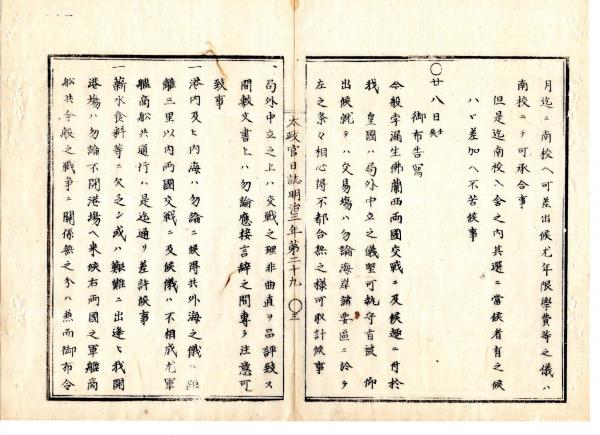 月迄ニ南校ヘ可差出候尤年限學費等之儀ハ
南校ニテ可承合事
但是迄南校入舎之内其選ニ當候者有之候
ハヽ差加ヘ不苦候事
〇廿八日
御布告寫
今般孛漏生佛蘭西兩國交戰ニ及候趣ニ付於
我 皇國ハ局外中立之儀堅可執守旨被 仰
出候就テハ交易場ハ勿論海岸諸要區ニ於テ
左之条々相心得不都合無之様可取計候事
太政官日誌明治三年第二十九 〇三
一局外中立之上ハ交戰之理非曲直ヲ品評致ス
間敷文書上ハ勿論應接言辭之間專ラ注意可
致事
一港内及ヒ内海ハ勿論ニ候得共外海之儀ハ距
離三里以内兩國交戰ニ及候儀ハ不相成尤軍
艦商船共通行ハ是迄通リ差許候事
一薪水食料等ニ欠乏シ或ハ艱難ニ出逢ヒ我開
港場ハ勿論不開港場ヘ来候右兩國之軍艦商
船共今般之戰爭ニ關係無之分ハ兼而御布令